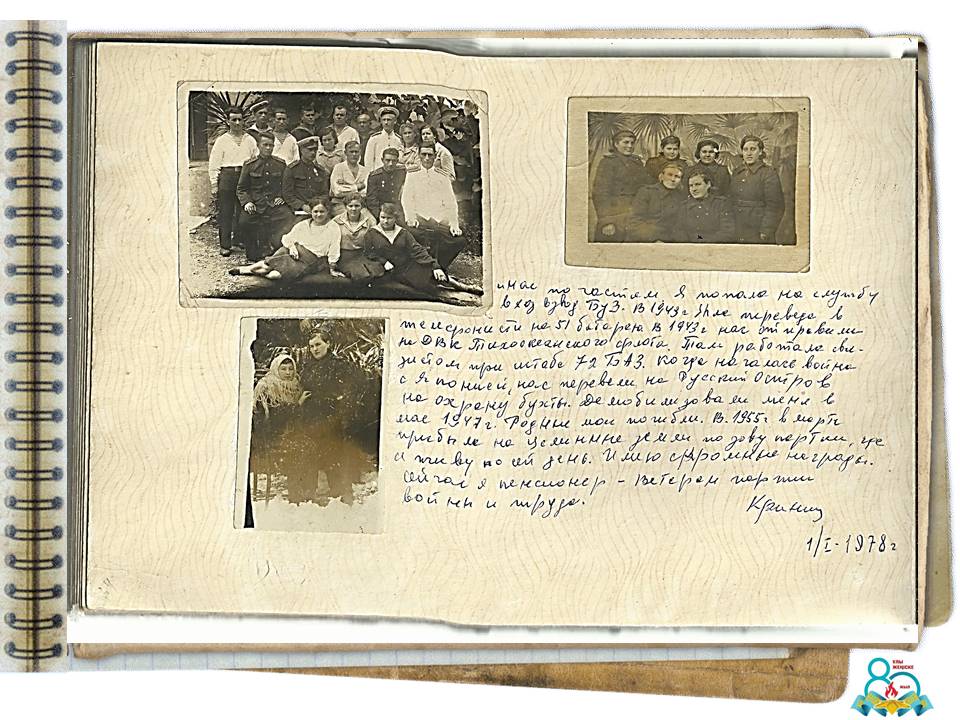 и нас по частям я попала на службу
в хоз взвод БУЗ. В 1943г переведе в
телефонисти на 51 батарею В 1943г нас отправили
на ДВК Тихоокеанского флота Там работала свя-
зистом при штабе 72 БАЗ. Когда началась война
с Японией, нас перевели на Русский Остров
на охрану бухты. Демобилизовали меня в
мае 1947г. Родные мои погибли. В. 1955г в марте
прибыла на целинные земли по зову партии, где
и живу по сей день. Имею скромные награды.
Сейчас я пенсионер - ветеран партии
войны и труда.
1/I-1978г
ҰЛЫ
ЖЕҢІСКЕ
80
ЖЫЛ